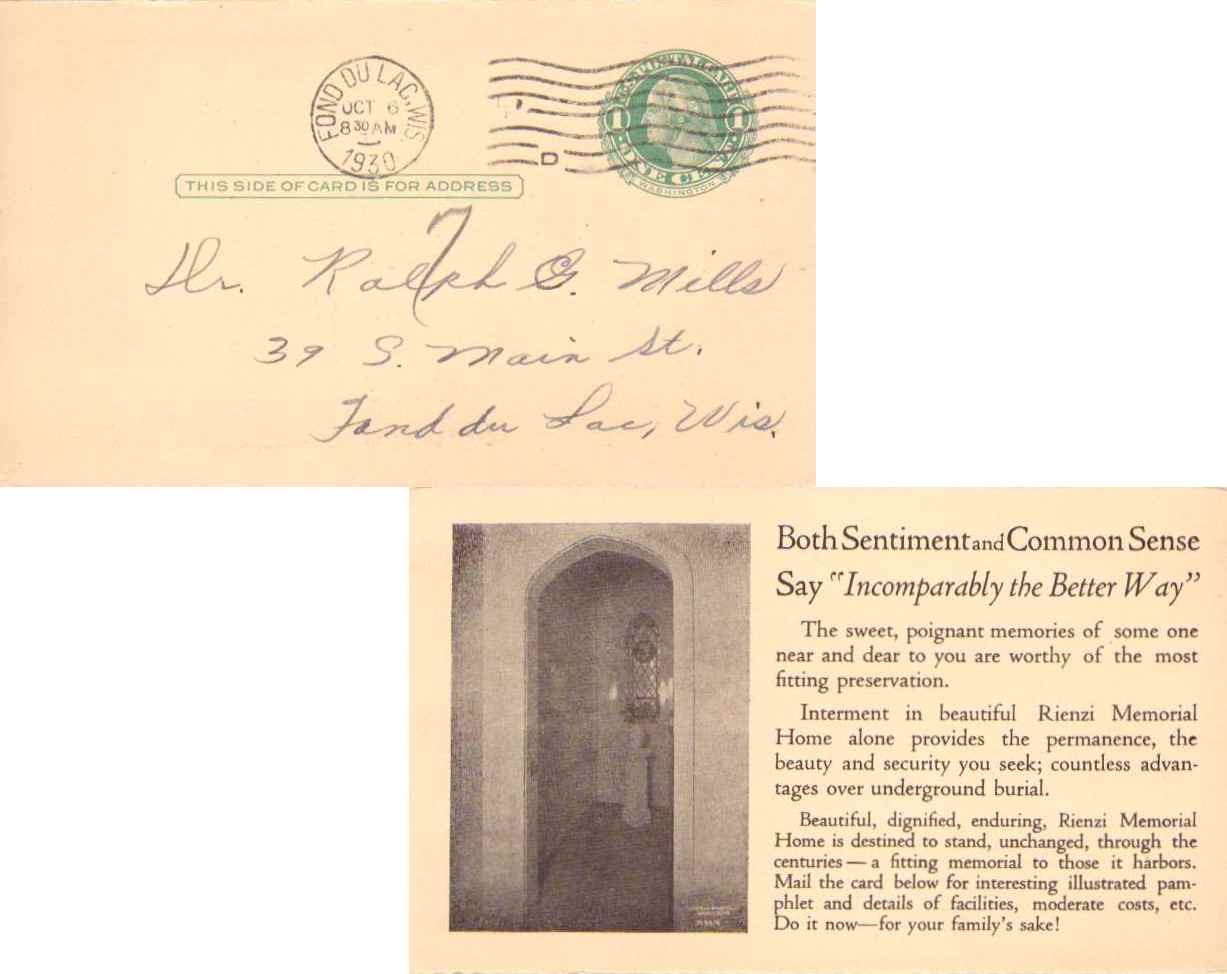 FOND DU LAC, WIS.
OCT 6
8 30 AM
1930
D
U.S. POSTAL CARD
1 1
ONE CENT
WASHINGTON
THIS SIDE OF CARD IS FOR ADDRESS
7
Dr. Ralph G. Mills
39 S. Main St.
Fond du Lac, Wis.
Both Sentiment and Common Sense
Say "Incomparably the Better Way"
The sweet, poignant memories of some one
near and dear to you are worthy of the most
fitting preservation.
Interment in beautiful Rienzi Memorial
Home alone provides the permanence, the
beauty and security you seek; countless advan-
tages over underground burial.
Beautiful, dignified, enduring, Rienzi Memorial
Home is destined to stand, unchanged, through the
centuries — a fitting memorial to those it harbors.
Mail the card below for interesting illustrated pam-
phlet and details of facilities, moderate costs, etc.
Do it now—for your family's sake!